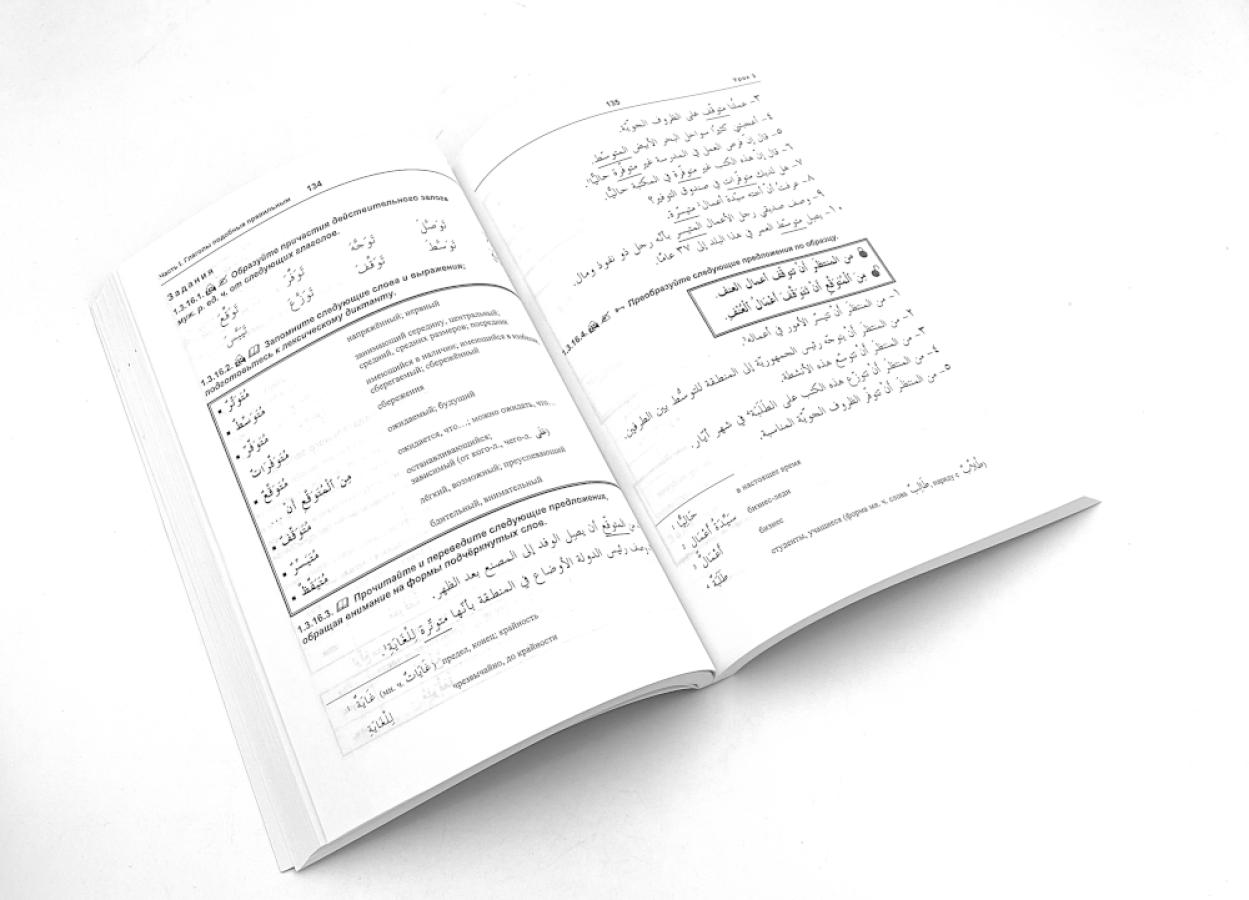 Часть I. Глаголы подобные правильным 134
Задания
1.3.16.1. Образуйте причастия действительного залога
муж. р. ед. ч. от следующих глаголов.
تَوَصَّلَ تَوَجَّهَ تَوَفَّرَ تَوَقَّعَ
تَوَسَّطَ تَوَقَّفَ تَوَزَّعَ تَيَسَّرَ
1.3.16.2. Запомните следующие слова и выражения;
подготовьтесь к лексическому диктанту.
مُتَوَتِّرٌ напряжённый; нервный
مُتَوَسِّطٌ занимающий середину, центральный;
средний, средних размеров; посредник
مُتَوَفِّرٌ имеющийся в наличии; имеющийся в изобилии
сберегаемый; сбережённый
مُتَوَفِّرَاتٌ сбережения
مُتَوَقَّعٌ ожидаемый; будущий
مِنَ ٱلْمُتَوَقَّعِ أَنْ ... ожидается, что…; можно ожидать, что…
مُتَوَقِّفٌ останавливающийся;
зависимый (от кого-л., чего-л. عَلَى)
مُتَيَسِّرٌ лёгкий, возможный; преуспевающий
مُتَيَقِّظٌ бдительный, внимательный
1.3.16.3. Прочитайте и переведите следующие предложения,
обращая внимание на формы подчёркнутых слов.
من المتوقّع أن يصل الوفد إلى المصنع بعد الظهر.
وصف رئيس الدولة الأوضاع في المنطقة بأنّها متوتّرة لِلْغَايَةِ¹.
¹ غَايَةٌ (мн. ч. غَايَاتٌ) предел, конец; крайность
لِلْغَايَةِ чрезвычайно, до крайности
135 Урок 3
٣- عملنا متوقّف على الظروف الجوّيّة.
٤- أعجبتني كثيرًا سواحل البحر الأبيض المتوسّط.
٥- قال إنّ فرص العمل في المدرسة غير متوفّرة حاليًّا¹.
٦- قال إنّ هذه الكتب غير متوفّرة في المكتبة حاليًّا.
٧- هل لديك متوفّرات في صندوق التوفير؟
٨- عرفت أنّ أخته سيّدة أعمال² متيسّرة.
٩- وصف صديقي رجل الأعمال المتيسر بأنّه رجل ذو نفوذ ومال.
١٠- يصل متوسّط العمر في هذا البلد إلى ٣٧ عامًا.
1.3.16.4. Преобразуйте следующие предложения по образцу.
من المنتظر أن تتوقّف أعمال العنف.
مِنَ ٱلْمُتَوَقَّعِ أَنْ تَتَوَقَّفَ أَعْمَالُ ٱلْعُنْفِ.
١- من المنتظر أن تتيسّر الأمور في أعماله³.
٢- من المنتظر أن يتوجّه رئيس الجمهوريّة إلى المنطقة للتوسُّط بين الطرفين.
٣- من المنتظر أن تتوسّع هذه الأنشطة.
٤- من المنتظر أن تتوزّع هذه الكتب على الطَّلَبَةِ⁴ في شهر أيّار.
٥- من المنتظر أن تتوفّر الظروف الجوّيّة المناسبة.
حَالِيًّا ¹ в настоящее время
سَيِّدَةُ أَعْمَالٍ ² бизнес-леди
أَعْمَالٌ ³ бизнес
طَلَبَةٌ ⁴ студенты, учащиеся (форма мн. ч. слова طَالِبٌ, наряду с طُلَّابٌ)